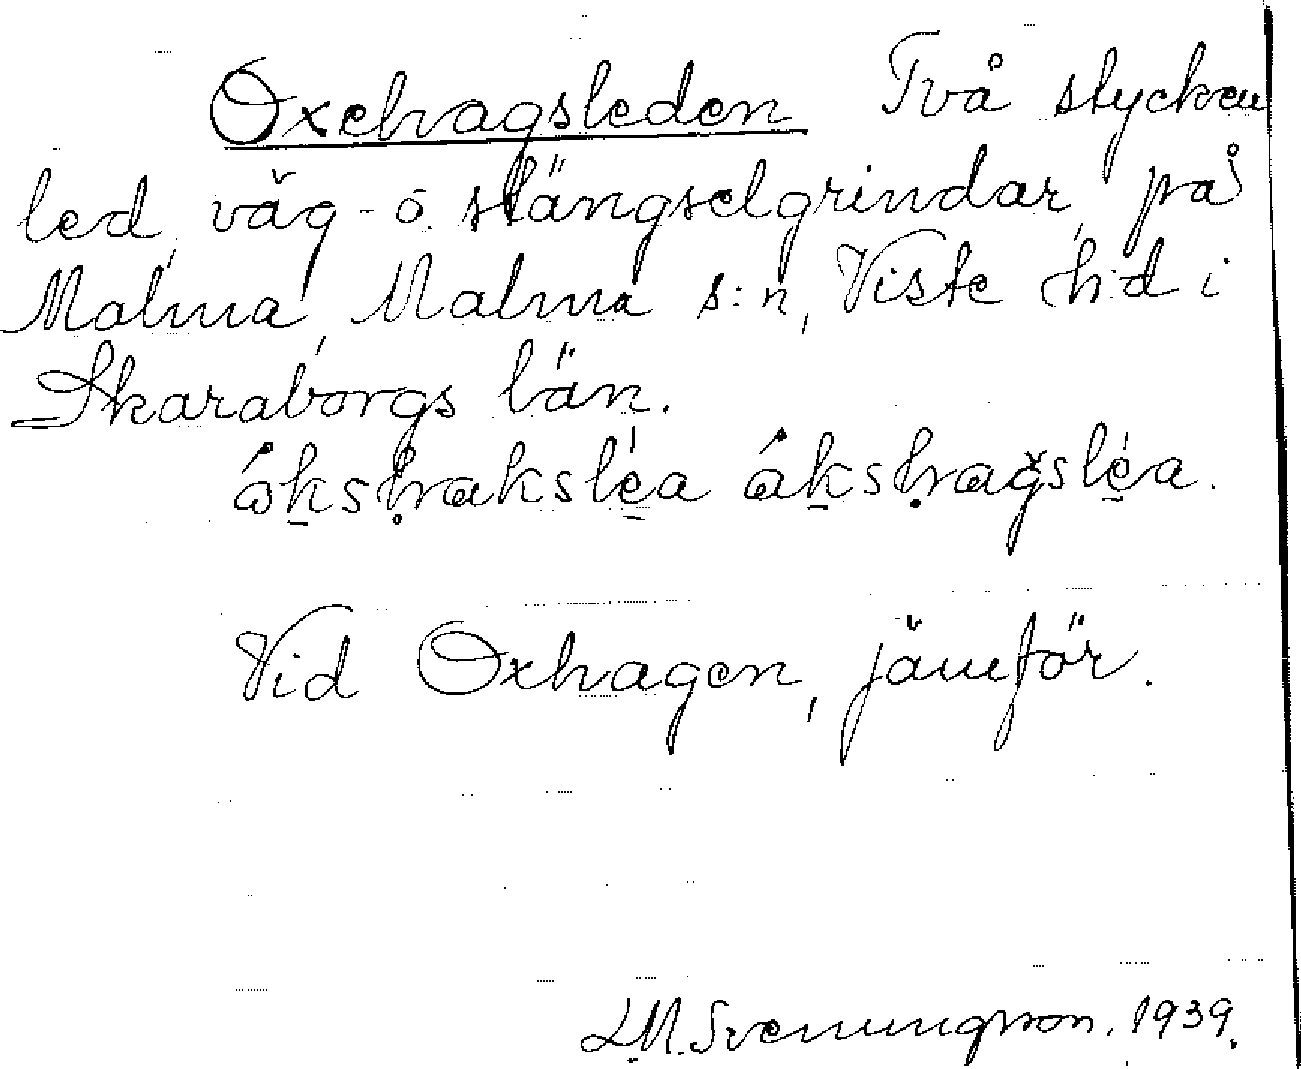 Oxehagsleden Två stycken
led, väg- o. stängselgrindar, på
Malma, Malma s:n, Viste h:d i
Skaraborgs län.
Vid Oxhagen, jämför.
L.M. Svenungsson. 1939.